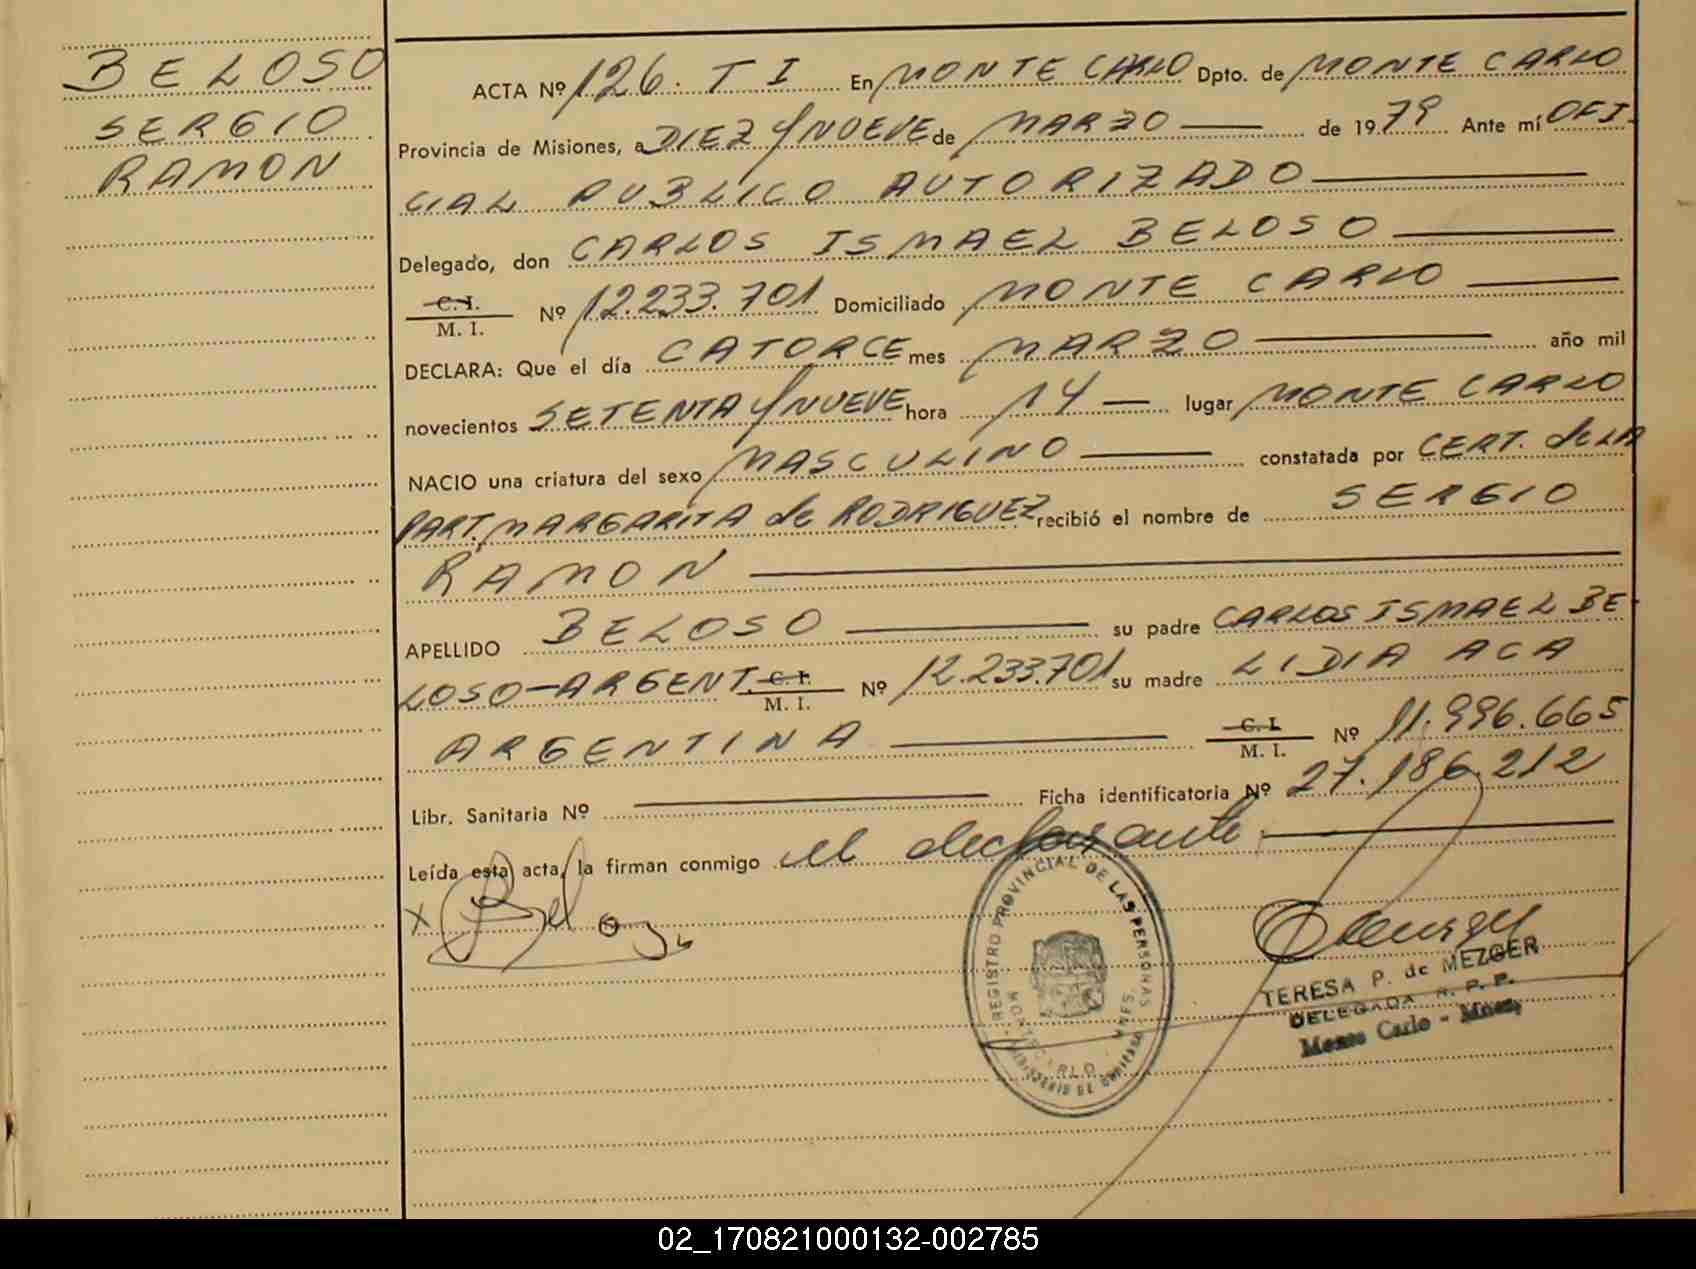 BELOSO
SERGIO
RAMON
ACTA Nº 126. T I En MONTE CARLO Dpto. de MONTE CARLO
Provincia de Misiones, a DIEZ y NUEVE de MARZO — de 1979 Ante mí OFI-
CIAL PUBLICO AUTORIZADO —
Delegado, don CARLOS ISMAEL BELOSO —
C. I.
M. I. Nº 12.233.701 Domiciliado MONTE CARLO —
DECLARA: Que el día CATORCE mes MARZO — año mil
novecientos SETENTA y NUEVE hora 14 — lugar MONTE CARLO
NACIO una criatura del sexo MASCULINO — constatada por CERT. de LA
PART. MARGARITA de RODRIGUEZ recibió el nombre de SERGIO
RAMON —
APELLIDO BELOSO — su padre CARLOS ISMAEL BE-
LOSO-ARGENT. C. I. M. I. Nº 12.233.701 su madre LIDIA ACA
ARGENTINA — C. I. M. I. Nº 11.996.665
Libr. Sanitaria Nº — Ficha identificatoria Nº 27.186.212
Leída esta acta, la firman conmigo el declarante —
x Beloso
REGISTRO PROVINCIAL DE LAS PERSONAS
MINISTERIO DE GOBIERNO
TERESA P. de MEZGER
DELEGADA R. P. P.
Monte Carlo - Mnes.
02_170821000132-002785